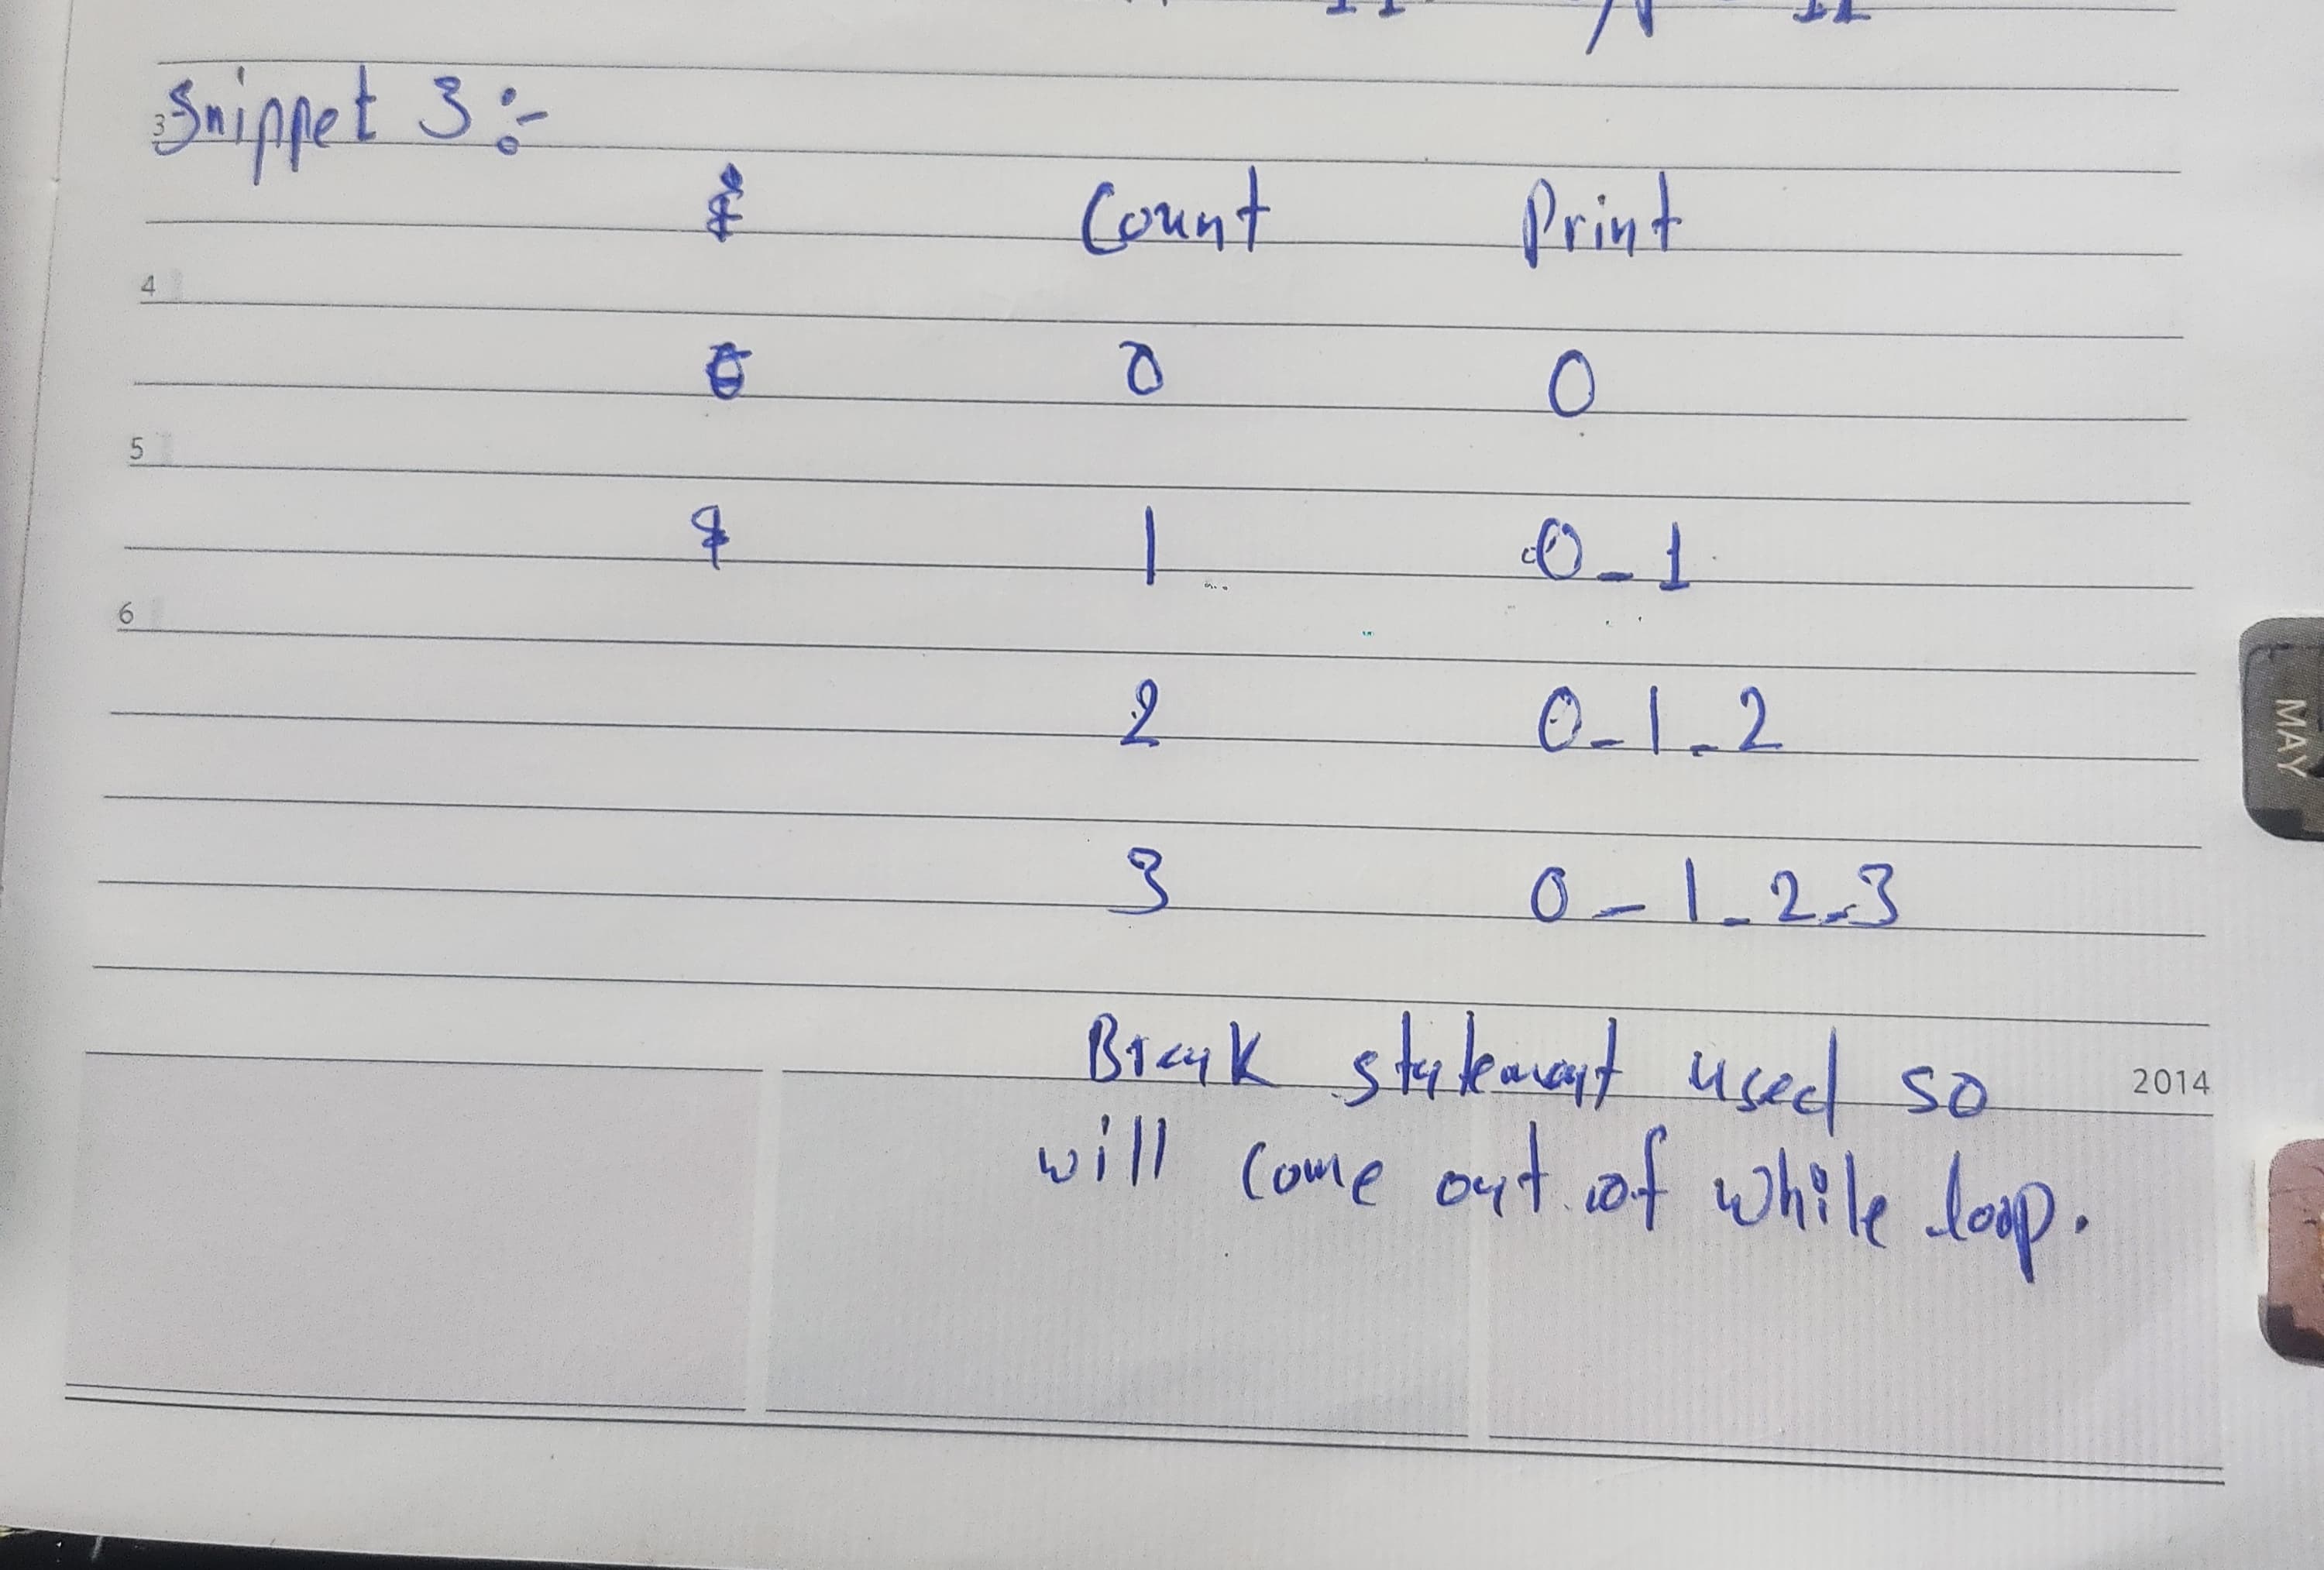 Snippet 3:-
3
Count Print
4
0 0
5
1 0_1
6
2 0_1_2
3 0_1_2_3
Break statement used so
2014
will come out of while loop.
MAY